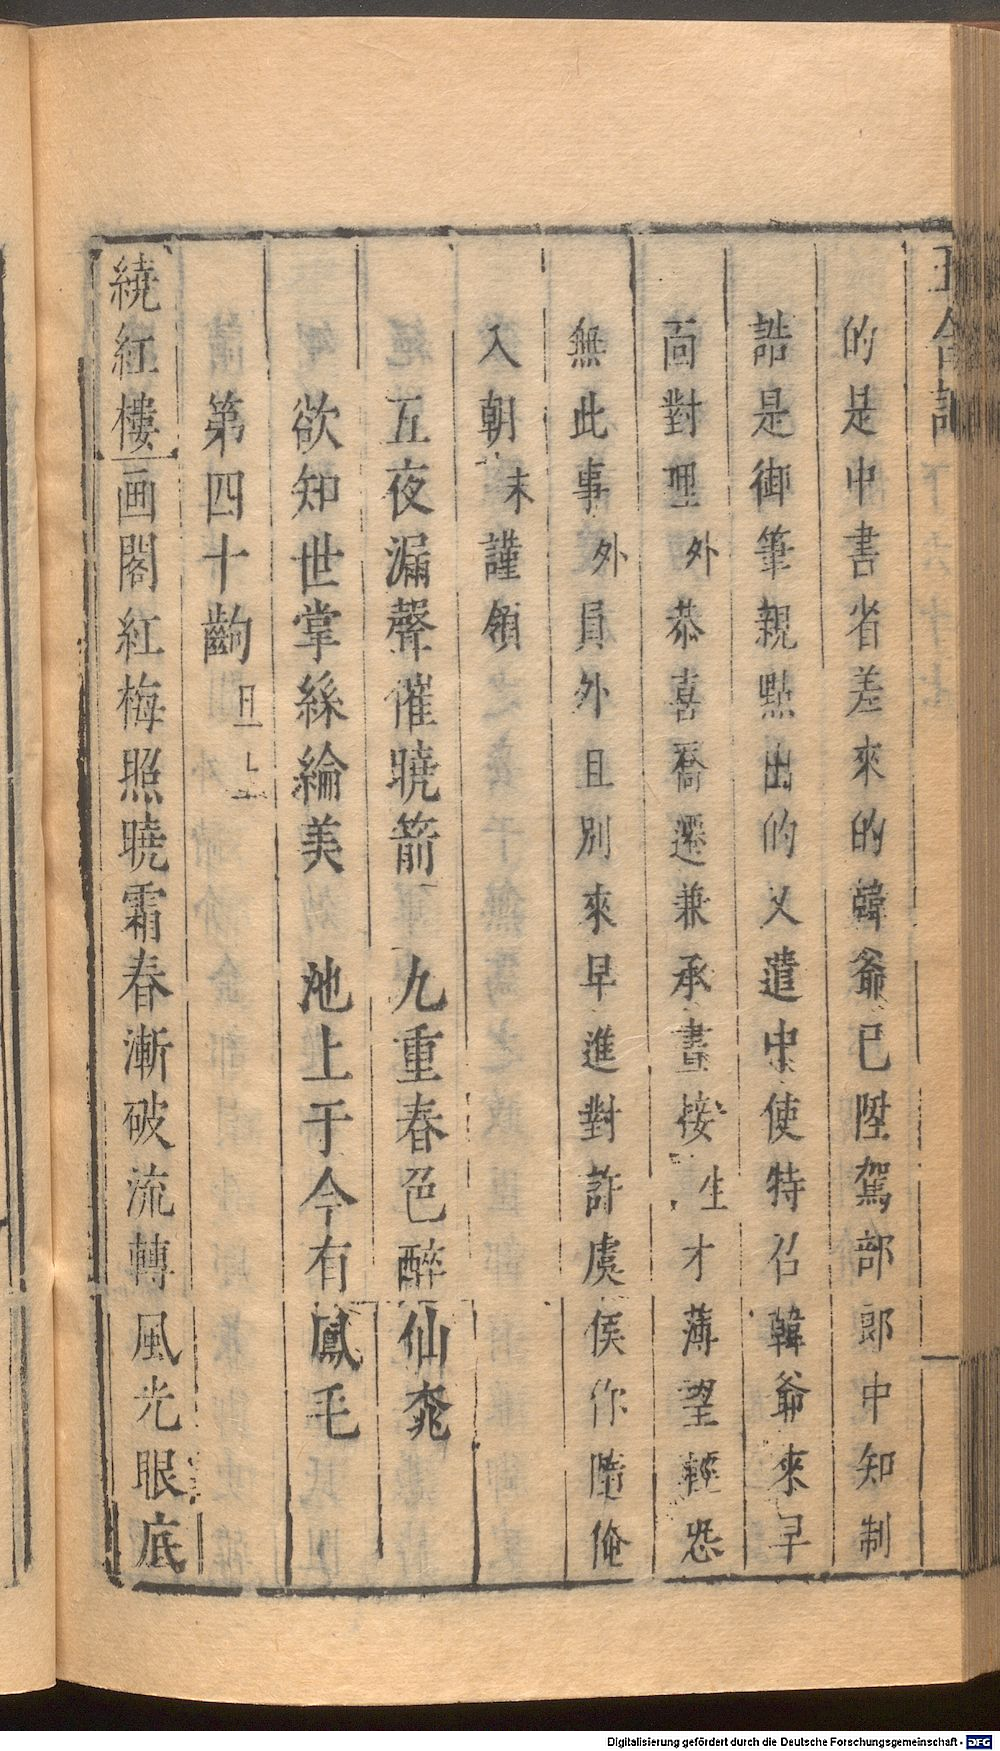 的是中書省差來的韓爺已陞駕部郎中知制
誥是御筆親點出的又遣中使特召韓爺來早
靣對理外恭喜喬遷兼承晝接生才薄望輕恐
無此事外員外且別來早進對許虞侯作陪俺
入朝末謹領
五夜漏聲催曉箭　九重春色醉仙桃
欲知世掌絲綸美　池上于今有鳳毛
第四十齣旦上
繞紅樓画閣紅梅照曉霜春漸破流轉風光眼底
Digitalisierung gefördert durch die Deutsche Forschungsgemeinschaft - DFG